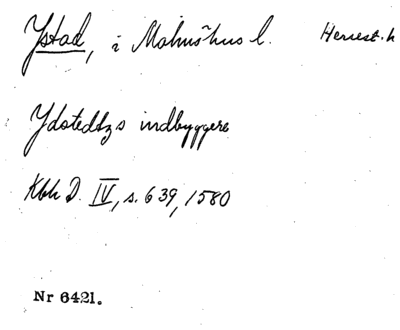 Ystad, i Malmöhus l. Herrest. h
Ydstedtzs indbyggere
Kbh D. IV, s. 639, 1580
Nr 6421.